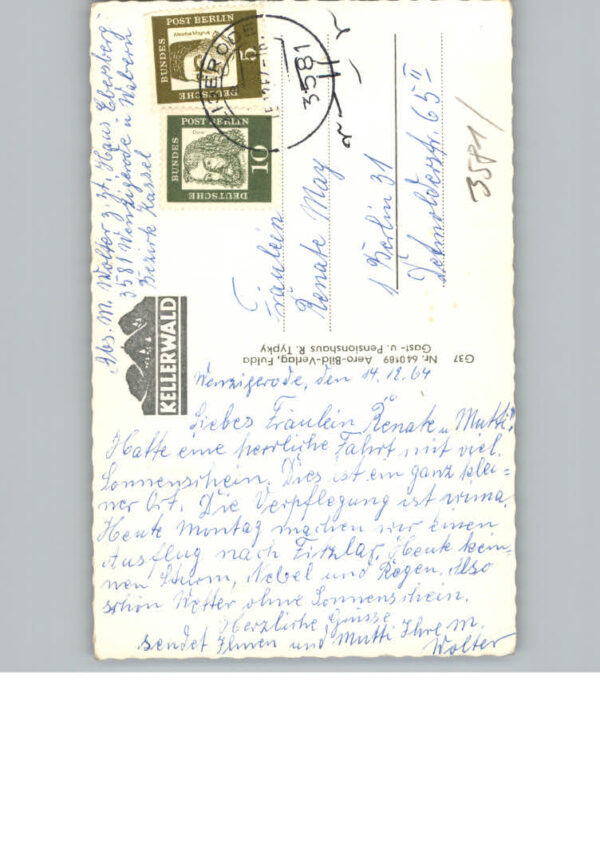 Abs. M. Wolter z. Zt. Haus Ebersberg
3581 Wenzigerode ü. Wabern
Bezirk Kassel
DEUTSCHE BUNDES POST BERLIN
5
DEUTSCHE BUNDES POST BERLIN
Dürer
10
3581
Fräulein
Renate May
1 Berlin 31
Detmolderstr. 65II
3581/
KELLERWALD
G37 Nr. 640189 Aero-Bild-Verlag, Fulda
Gast- u. Pensionshaus R. Typky
Wenzigerode, den 14.12.64
Liebes Fräulein Renate u. Mutti!
Hatte eine herrliche Fahrt mit viel
Sonnenschein. Dies ist ein ganz klei=
ner Ort. Die Verpflegung ist prima.
Heute Montag machen wir einen
Ausflug nach Fritzlar. Heute kein=
nen Sturm, Nebel und Regen. Also
schön Wetter ohne Sonnenschein.
Herzliche Grüsse
sendet Ihnen und Mutti Ihre M.
Wolter